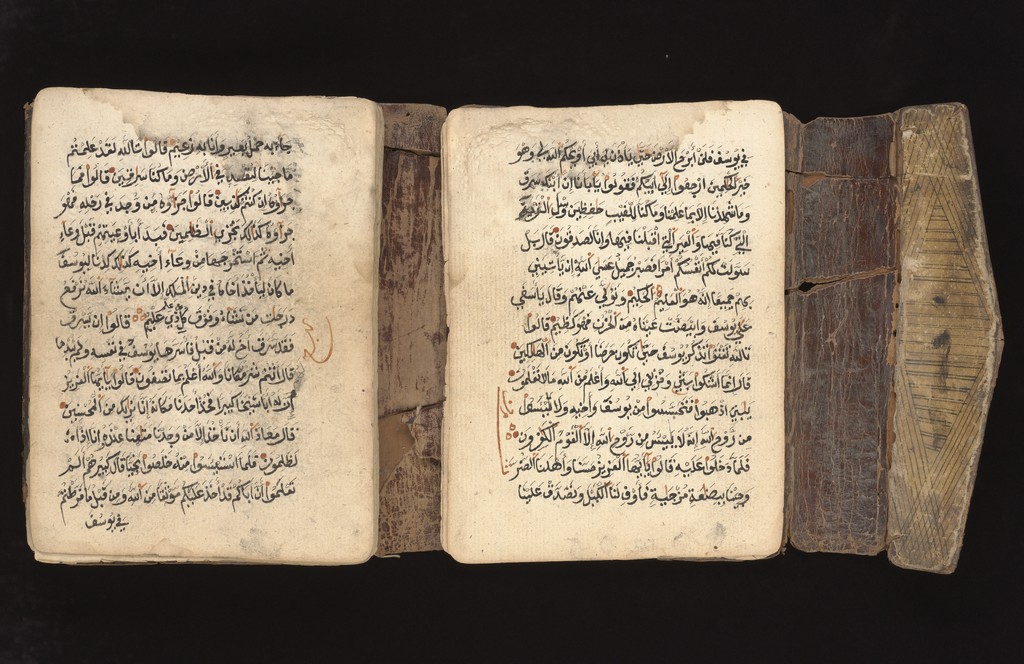 جاء به حمل بعير وانا به زعيم قالوا تالله لقد علمتم
ما جينا لنفسد في الارض وما كنا سرقين قالوا فما
جزاوه ان كنتم كذبين قالوا جزاوه من وجد في رحله فهو
جزاوه كذلك نجزي الظلمين فبدا باوعيتهم قبل وعاء
اخيه ثم استخرجها من وعاء اخيه كذلك كدنا ليوسف
ما كان لياخذ اخاه في دين الملك الا ان يشاء الله نرفع
درجت من نشاء وفوق كل ذي علم عليم قالوا ان يسرق
فقد سرق اخ له من قبل فاسرها يوسف في نفسه ولم يبدها
قال انتم شر مكانا والله اعلم بما تصفون قالوا يايها العزيز
ان له ابا شيخا كبيرا فخذ احدنا مكانه انا نريك من المحسنين
قال معاذ الله ان ناخذ الا من وجدنا متعنا عنده انا اذا
لظلمون فلما استيئسوا منه خلصوا نجيا قال كبيرهم الم
تعلموا ان اباكم قد اخذ عليكم موثقا من الله ومن قبل ما فرطتم
في يوسف
في يوسف فلن ابرح الارض حتى ياذن لي ابي او يحكم الله لي وهو
خير الحكمين ارجعوا الى ابيكم فقولوا يابانا ان ابنك سرق
وما شهدنا الا بما علمنا وما كنا للغيب حفظين وسل القرية
التي كنا فيها والعير التي اقبلنا فيها وانا لصدقون قال بل
سولت لكم انفسكم امرا فصبر جميل عسى الله ان ياتيني
بهم جميعا انه هو العليم الحكيم وتولى عنهم وقال ياسفى
على يوسف وابيضت عيناه من الحزن فهو كظيم قالوا
تالله تفتوا تذكر يوسف حتى تكون حرضا او تكون من الهلكين
قال انما اشكوا بثي وحزني الى الله واعلم من الله ما لا تعلمون
يبني اذهبوا فتحسسوا من يوسف واخيه ولا تيئسوا
من روح الله انه لا ييئس من روح الله الا القوم الكفرون
فلما دخلوا عليه قالوا يايها العزيز مسنا واهلنا الضر
وجئنا ببضعة مزجية فاوف لنا الكيل وتصدق علينا